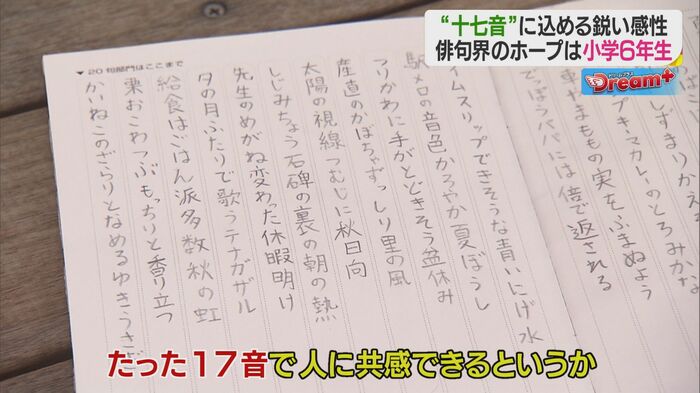 “十七音”に込める鋭い感性
俳句界のホープは小学6年生
Dream+
しずまりかえ
キーマカレーのとろみかな
車やまももの実をふまぬよう
でっぽうパパには倍で返される
イムスリップできそうな青いにげ水
駅メロの音色かろやか夏ぼうし
つりかわに手がとどきそう盆休み
産直のかぼちゃずっしり里の風
太陽の視線つむじに秋日向
しじみちょう石碑の裏の朝の熱
先生のめがね変わった休暇明け
夕の月ふたりで歌うテナガザル
給食はごはん派多数秋の虹
栗おこわつぶもっちりと香り立つ
かいねこのざらりとなめるゆきうさぎ
▼20句部門はここまで
たった17音で人に共感できるというか